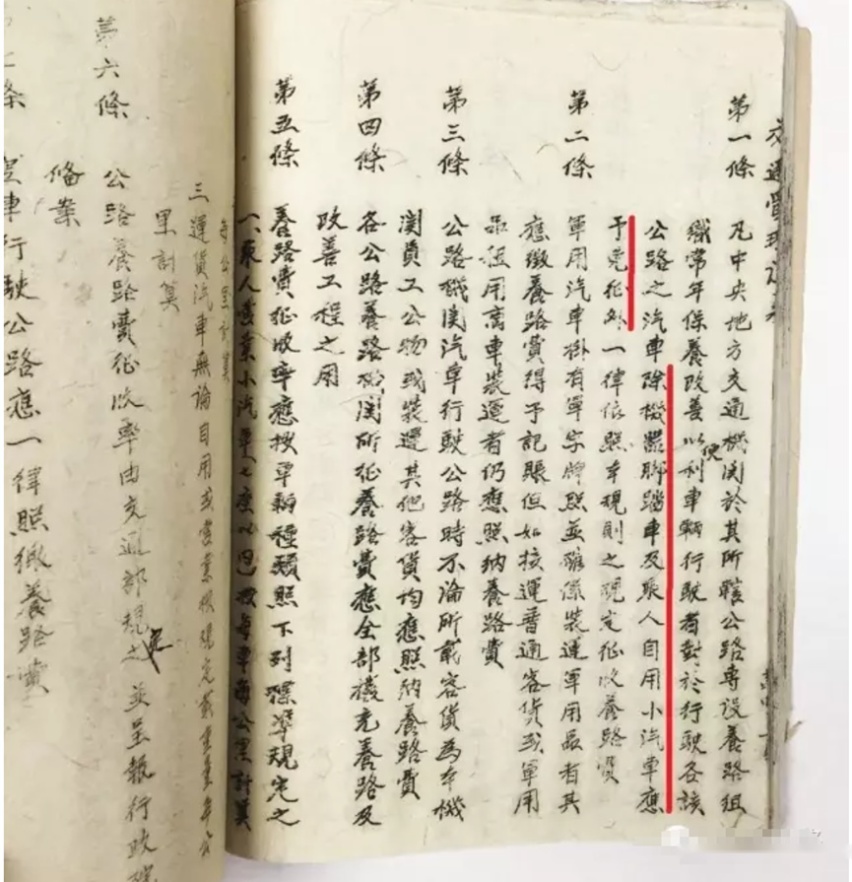 交通管理
第一條 凡中央地方交通機関於其所轄公路專设養路组
織常年保養改善以便利車輛行驶者對於行驶各該
公路之汽車除機器腳踏車及乘人自用小汽車應
予免征外一律依照本規則之規定征收養路費
第二條 軍用汽車掛有軍字牌照並確係装運軍用品者其
應繳養路費得予記賬但如接運普通客货或軍用
品租用商車装運者仍應照纳養路費
第三條 公路機関汽車行驶公路時不論所載客货為本機
関員工公物或装運其他客货均應照纳養路費
第四條 各公路養路機関所征養路費應全部撥充養路及
改善工程之用
第五條 養路費征收率應按車輛種類照下列標準規定之
一、乘人營業小汽車 按每車每公里計算
每公里計算
三運货汽車無論自用或營業按規定載重量每公
里計算
第六條 公路養路費征收率由交通部規定之並呈報行政院
俻案
條 車行驶公路應一律照缴養路費